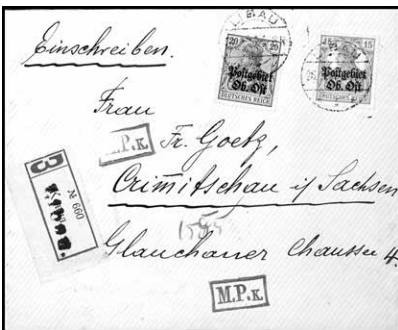 Einschreiben.
LIBAU
20 20
Postgebiet
Ob. Ost
DEUTSCHES REICH
15 15
Postgebiet
Ob. Ost
DEUTSCHES REICH
Frau
M.P.K.
Fr. Goetz,
Crimitschau i/ Sachsen
№ 660
Glauchauer Chaussee 4.
M.P.K.